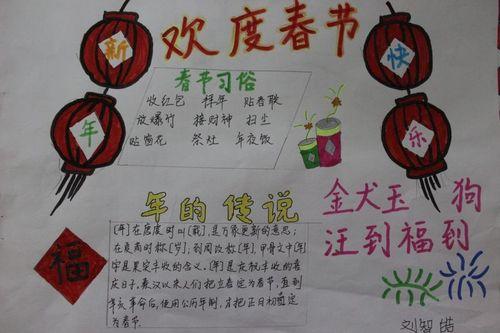 欢度春节
新
年
快
乐
春节习俗
收红包 拜年 贴春联
放爆竹 接财神 扫尘
贴窗花 祭灶 年夜饭
年的传说
[年]在唐虞时叫[载],是万家更新的意思;
在夏商时称[岁];到周改称[年].甲骨文中[年]
字是果实丰收的含义.[年]是庆祝丰收的喜
庆日子,秦汉以来人们把立春定为春节,直到
辛亥革命后,使用公历年制,才把正月初一定
为春节.
福
金犬玉 狗
汪到福到
刘智